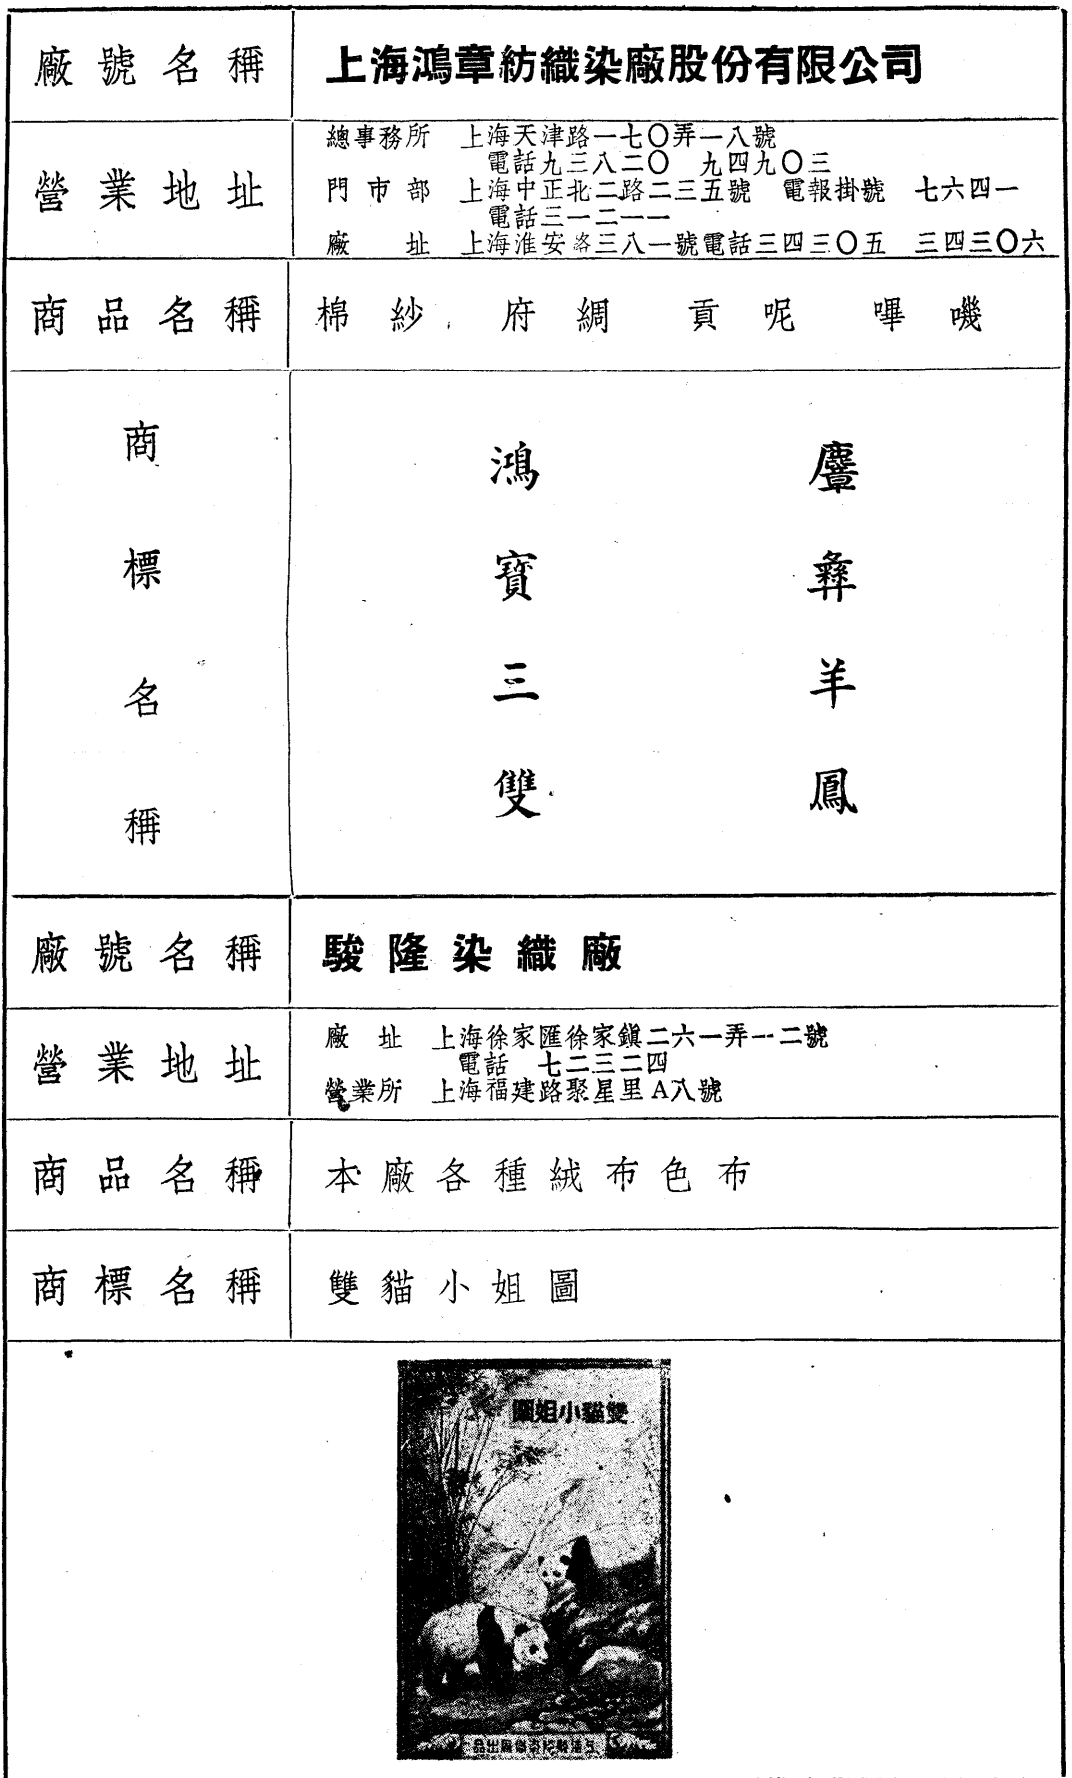 廠號名稱 上海鴻章紡織染廠股份有限公司
營業地址
總事務所 上海天津路一七〇弄一八號
電話九三八二〇 九四九〇三
門市部 上海中正北二路二三五號 電報掛號 七六四一
電話三一二一一
廠址 上海淮安路三八一號電話三四三〇五 三四三〇六
商品名稱 棉紗 府綢 貢呢 嗶嘰
商標名稱
鴻 麞
寶 彝
三 羊
雙 鳳
廠號名稱 駿隆染織廠
營業地址
廠址 上海徐家匯徐家鎮二六一弄一二號
電話 七二三二四
營業所 上海福建路聚星里A八號
商品名稱 本廠各種絨布色布
商標名稱 雙貓小姐圖
圖姐小貓雙
品出廠